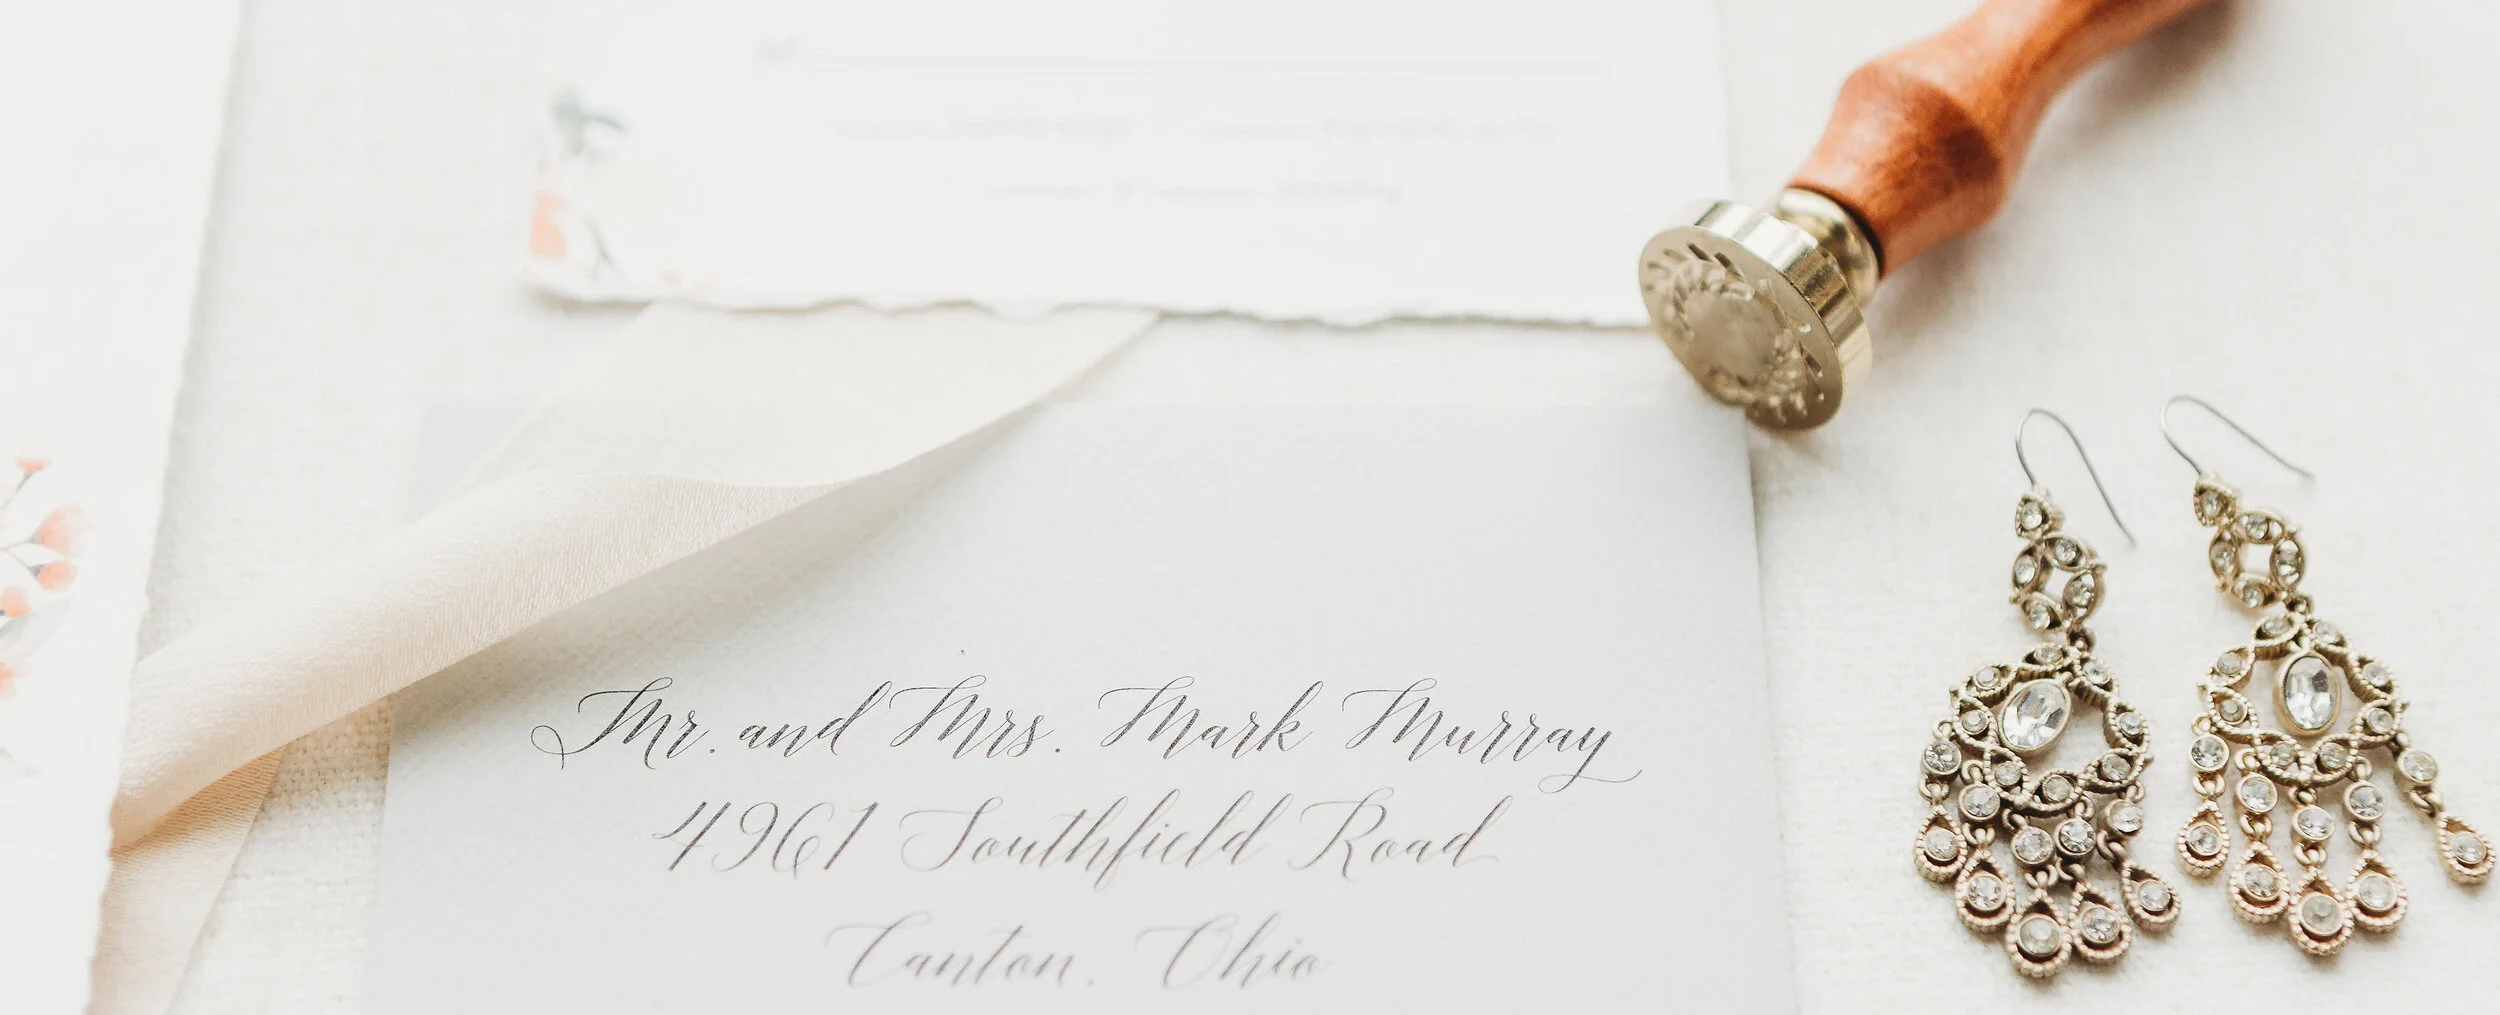 Mr. and Mrs. Mark Murray
4961 Southfield Road
Canton, Ohio